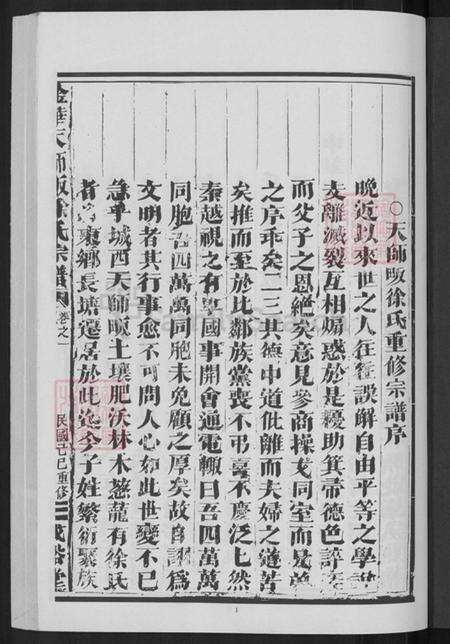 ○天師畈徐氏重修宗譜序
晚近以來世之人往往誤解自由平等之學說
支離滅裂互相煽惑於是耰助箕帚德色誶語
而父子之恩絕矣意見參商操戈同室而昆弟
之序乖矣二三其德中道仳離而夫婦之誼苦
矣推而至於比鄰族黨喪不弔喜不慶泛乜然
秦越視之有與國事開會通電輙曰吾四萬萬
同胞吾四萬萬同胞未免顧之厚矣故自謂爲
文明者其行事愈不可問人心如此世變不已
急乎城西天師畈土壤肥沃林木葱蘢有徐氏
者爲東鄉長塘遷居於此迄今子姓繁衍聚族
金華天師畈徐氏宗譜
卷之一
民國乙巳重修